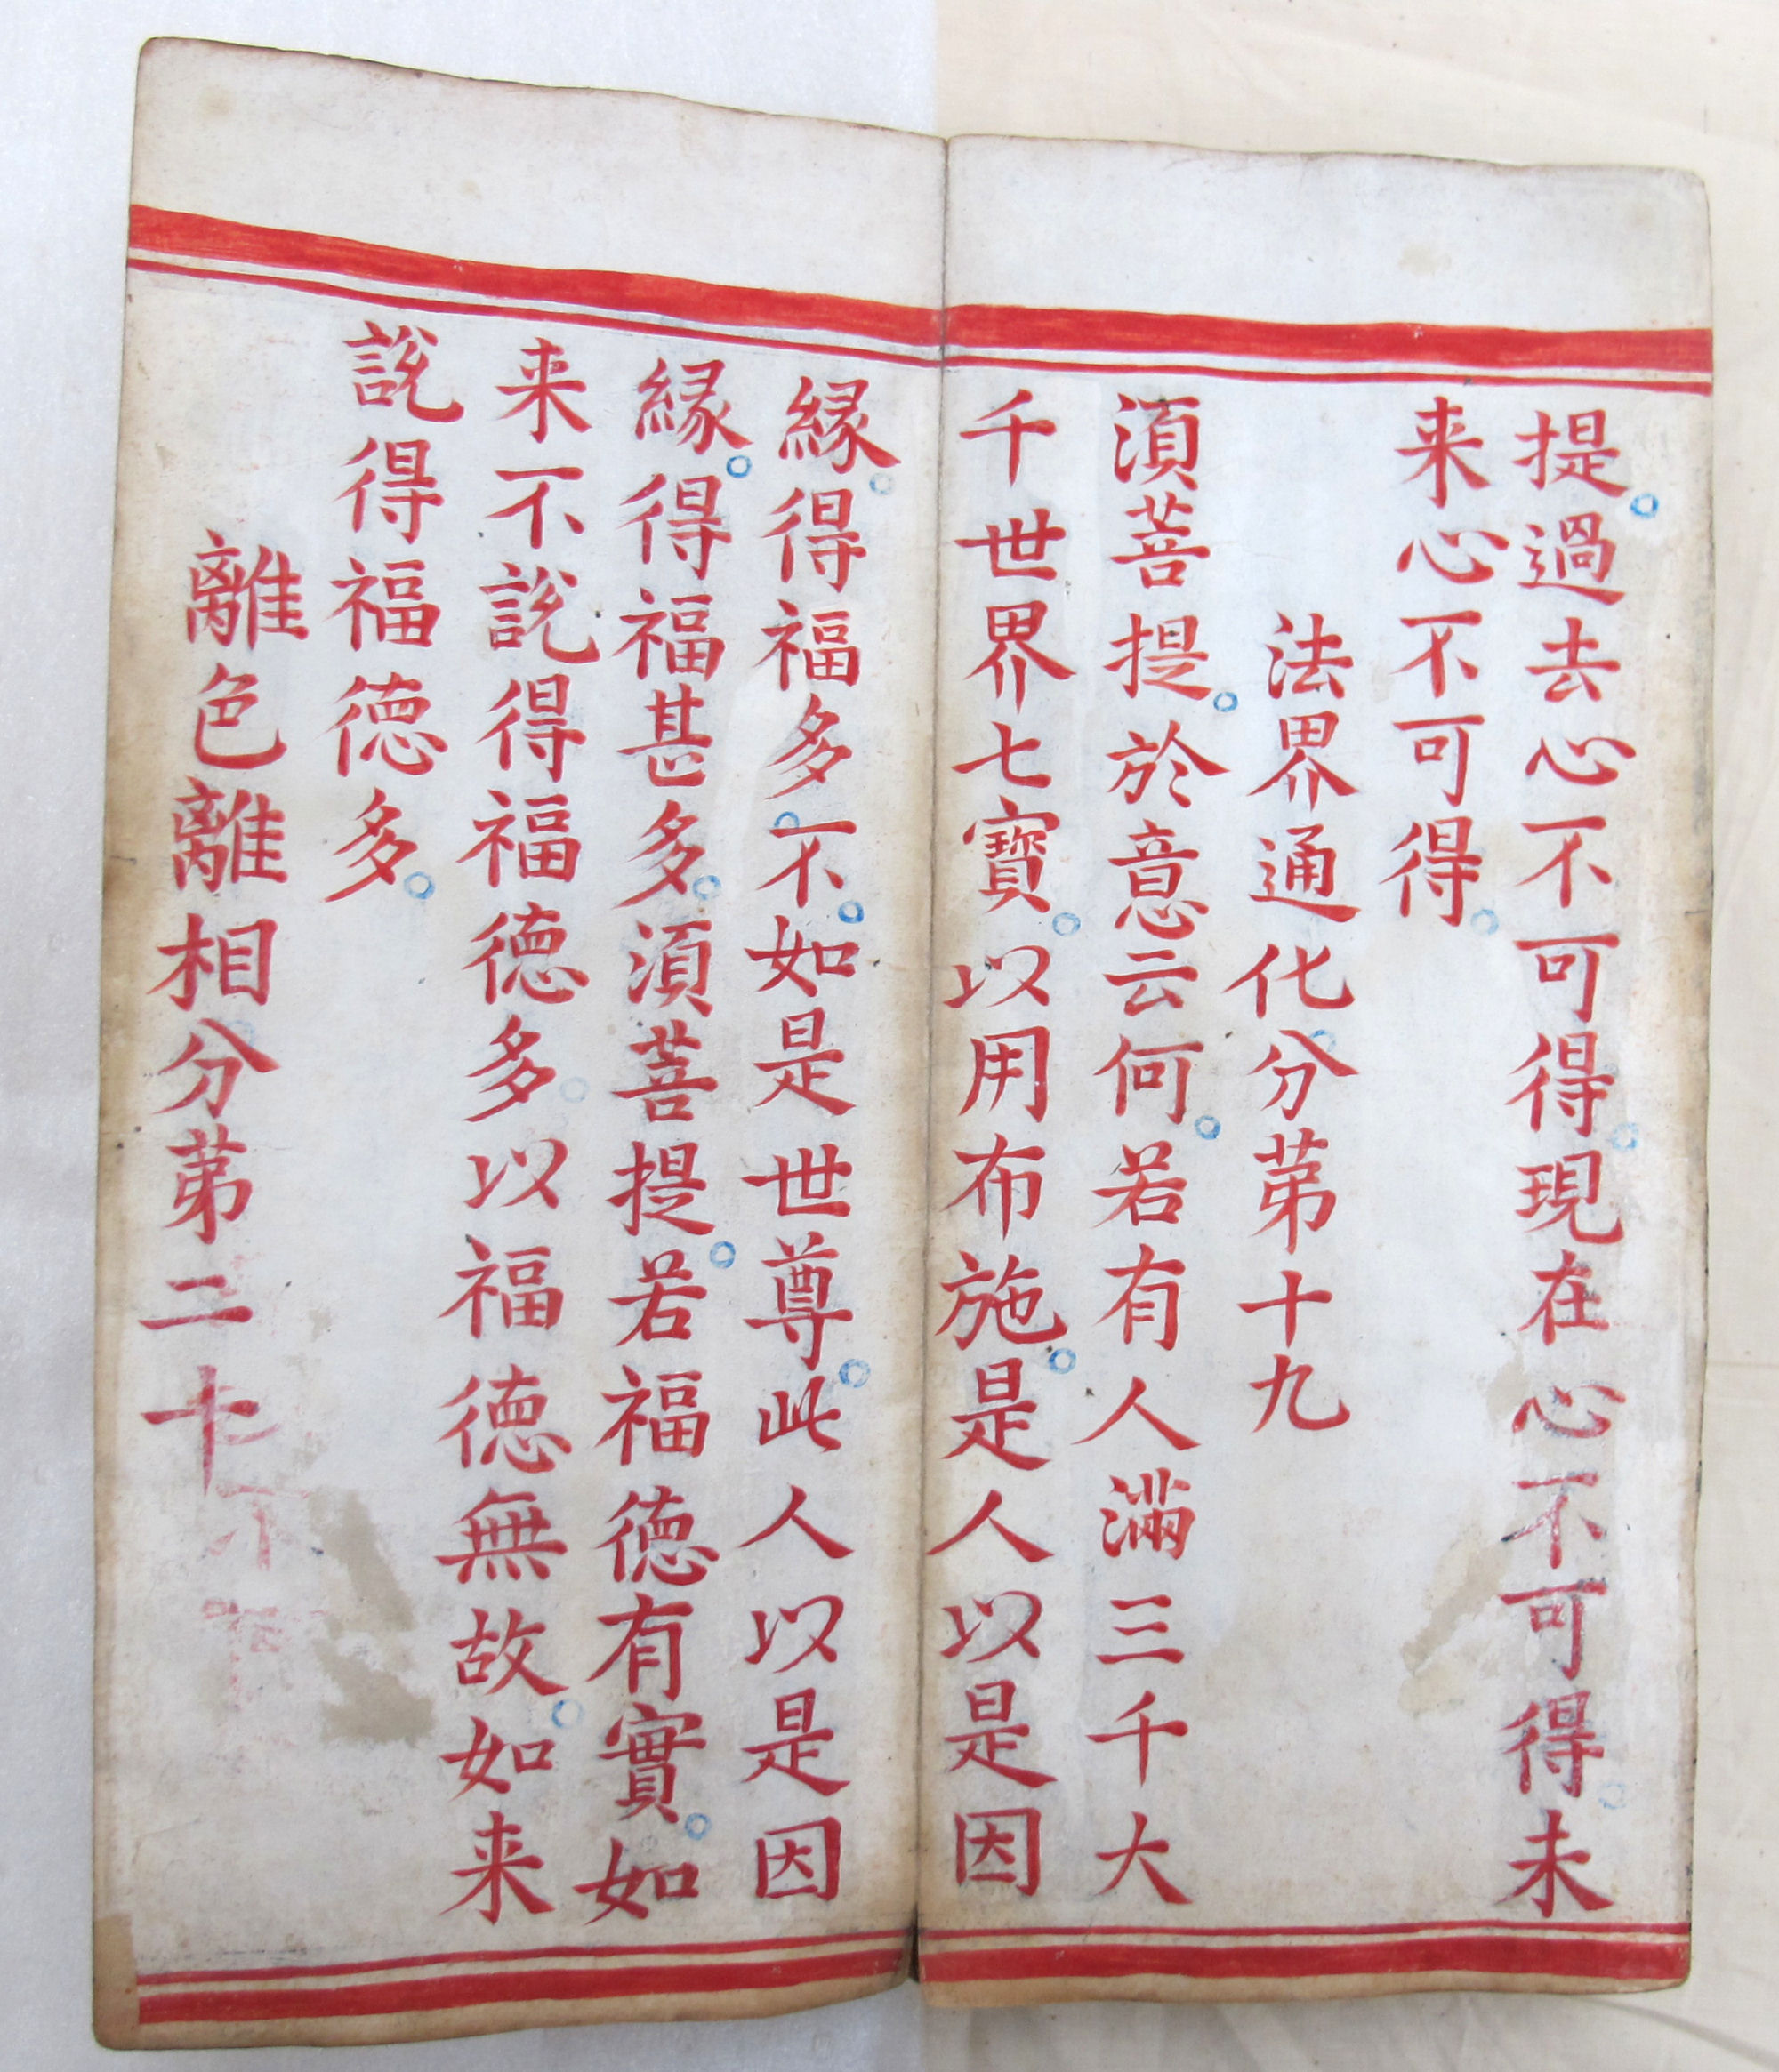 提。過去心不可得。現在心不可得。未
来心不可得。
法界通化分苐十九
湏菩提。於意云何。若有人滿三千大
千世界七寶。以用布施。是人以是因
緣。得福多。不。如是世尊。此人以是因
緣。得福甚多。湏菩提。若福徳有實。如
来不說得福徳多。以福徳無故。如来
說得福徳多。
離色離相分苐二十